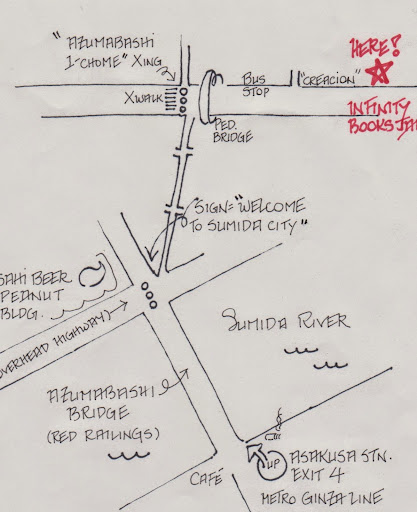 "AZUMABASHI
1-CHOME" XING
HERE!
XWALK
BUS
STOP
"CREACION"
PED.
BRIDGE
INFINITY
BOOKS
SIGN="WELCOME
TO SUMIDA CITY"
BEER
PEANUT
BLDG.
OVERHEAD HIGHWAY)
SUMIDA RIVER
AZUMABASHI
BRIDGE
(RED RAILINGS)
CAFÉ
UP
ASAKUSA STN.
EXIT 4
METRO GINZA LINE